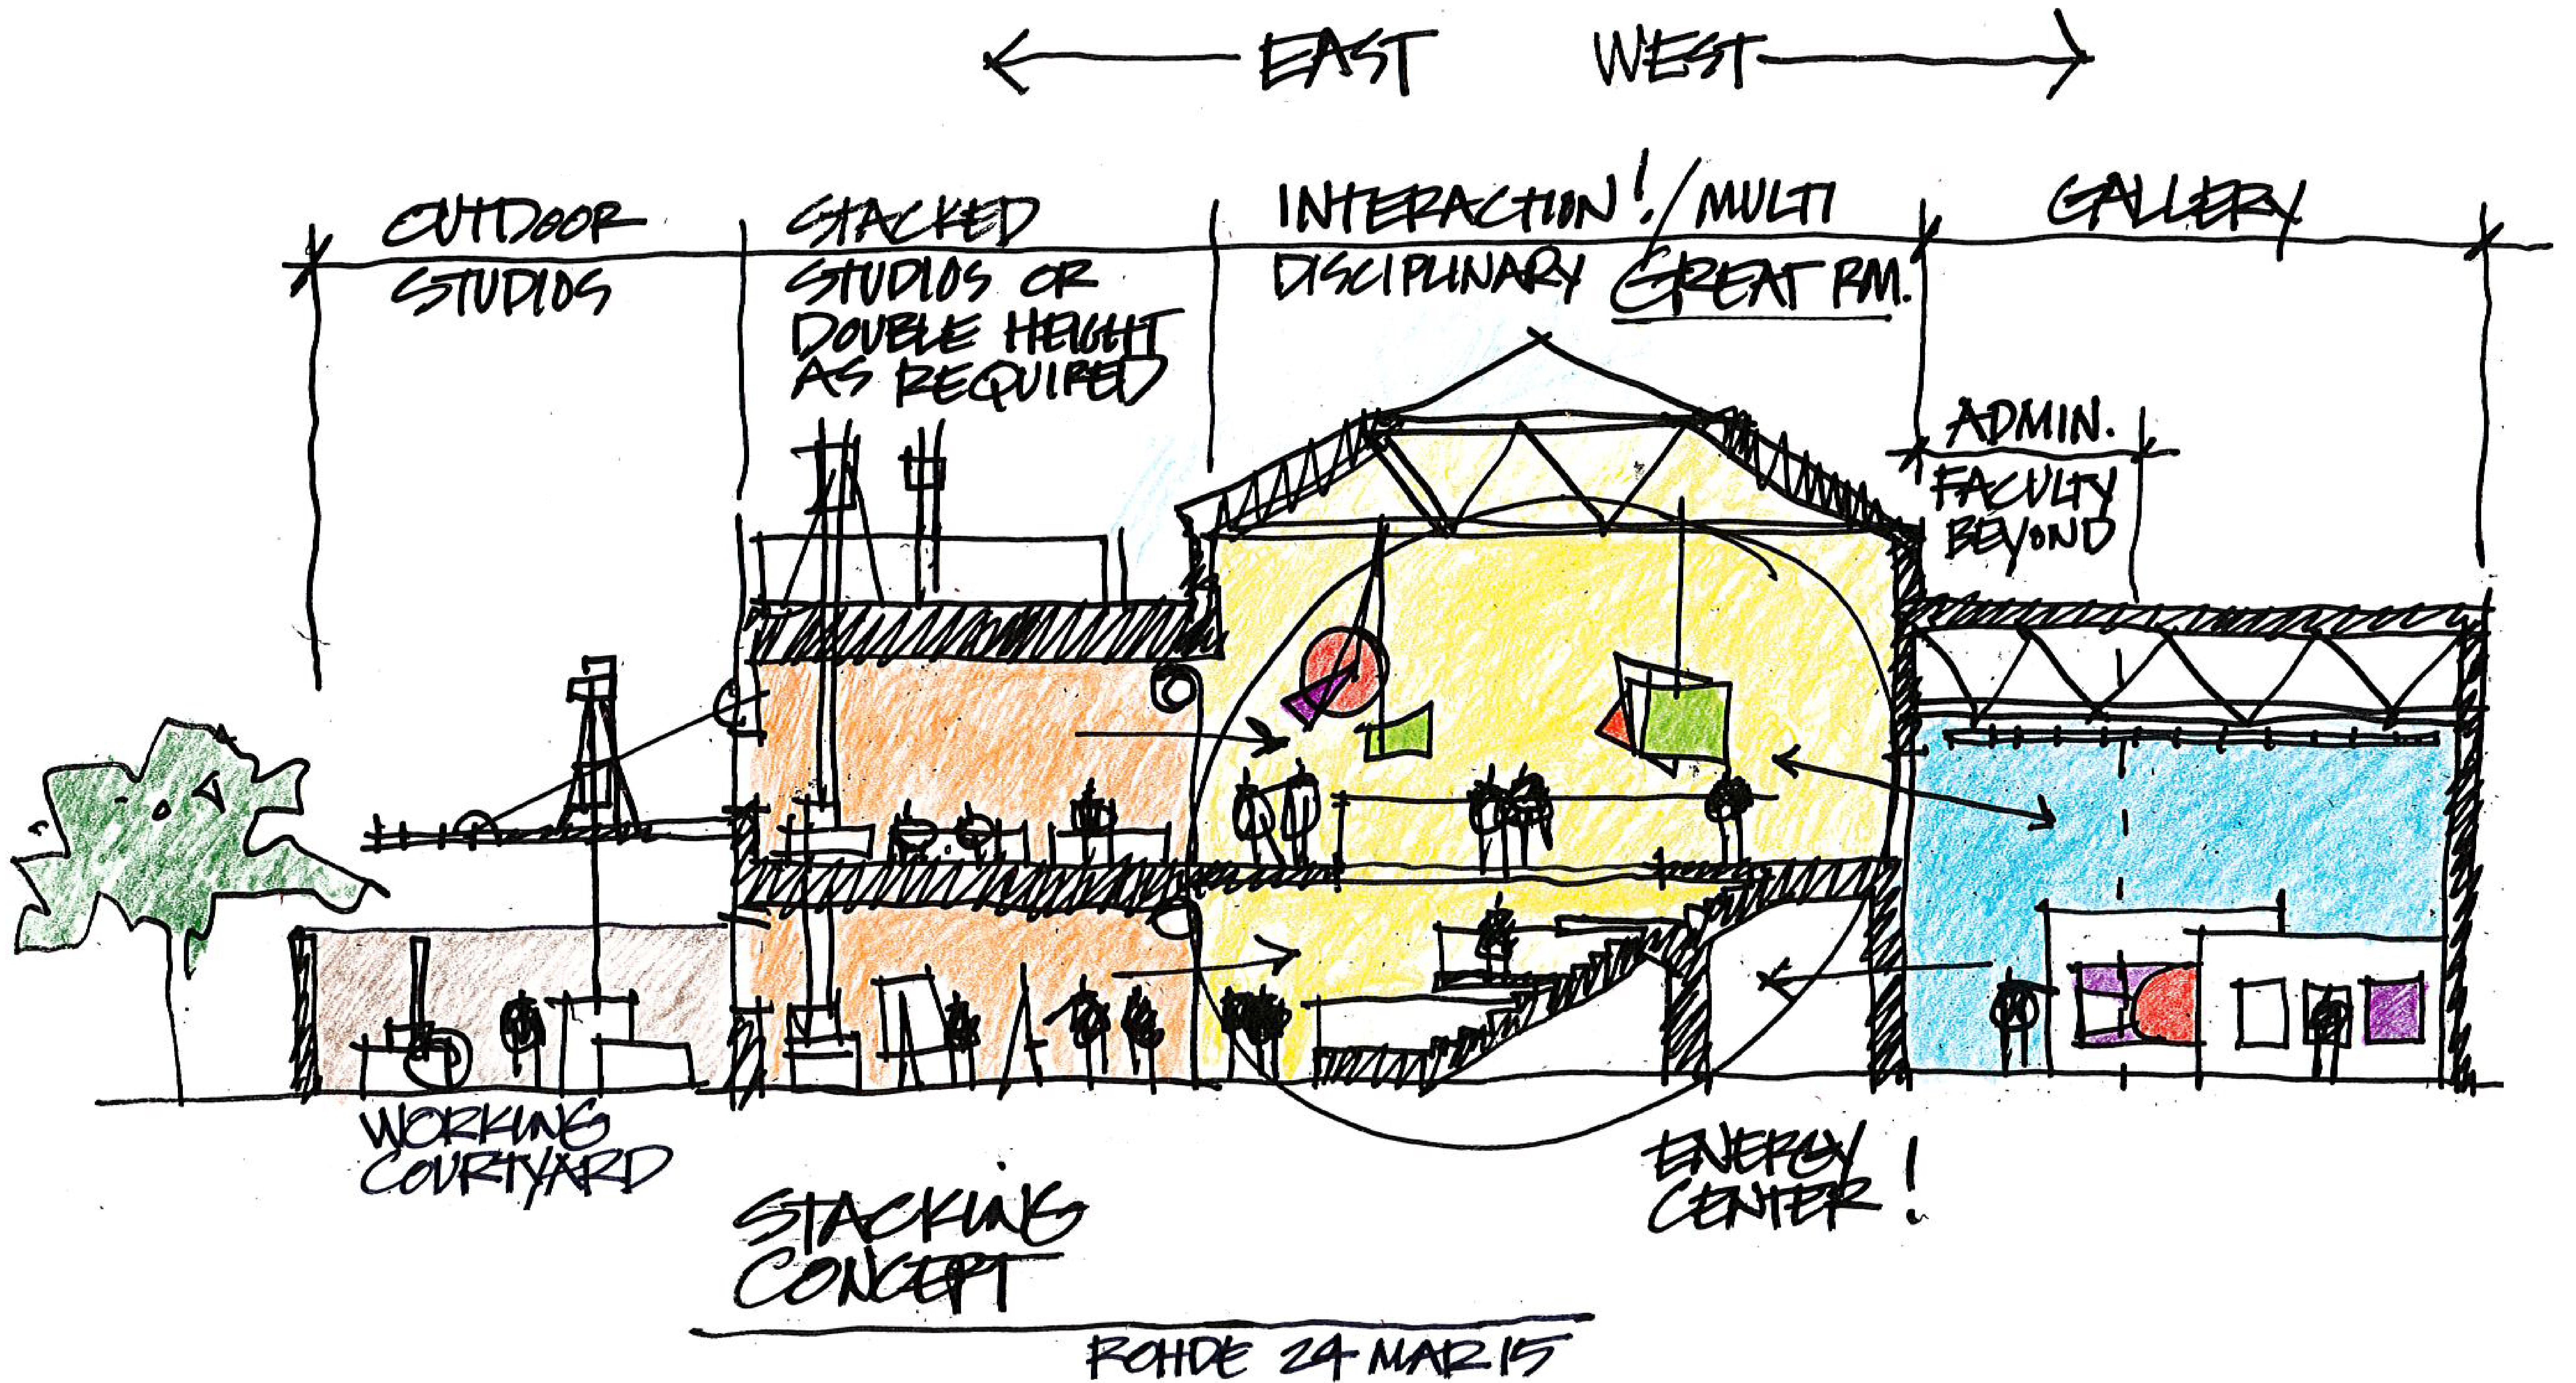 EAST WEST
OUTDOOR
STUDIOS
STACKED
STUDIOS OR
DOUBLE HEIGHT
AS REQUIRED
INTERACTION!/MULTI
DISCIPLINARY GREAT RM.
GALLERY
ADMIN.
FACULTY
BEYOND
WORKING
COURTYARD
ENERGY
CENTER!
STACKING
CONCEPT
ROHDE 24 MAR 15